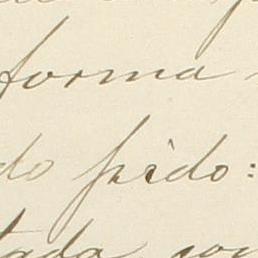 forma
do pido:
tada con